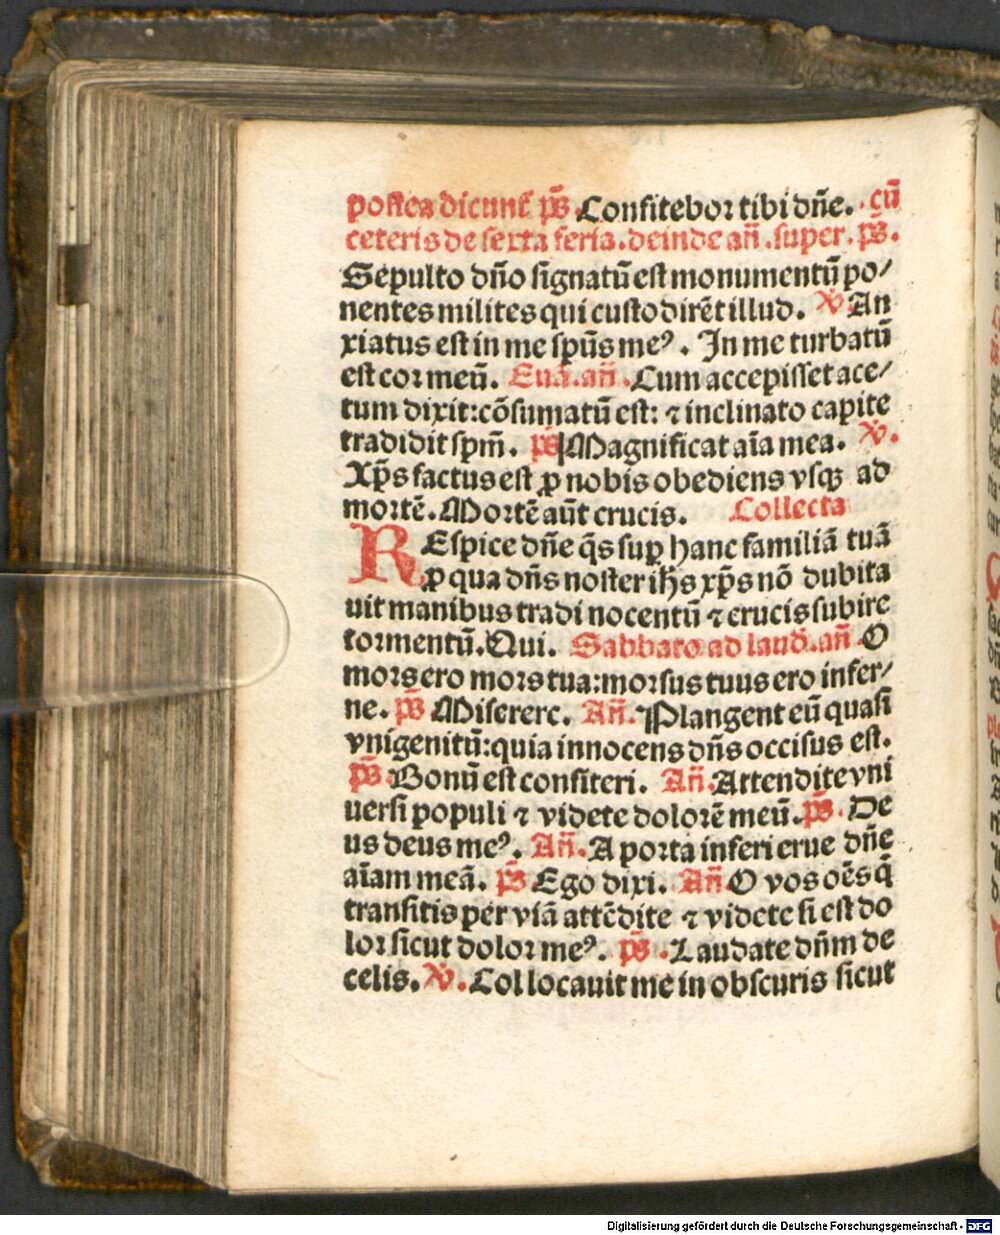 postea dicunt̄ ps̄. Confitebor tibi dn̄e. cū
ceteris de sexta feria. deinde añ. super. ps̄.
Sepulto dn̄o signatū est monumentū po/
nentes milites qui custodirēt illud. ℣ An
xiatus est in me sp̄us meꝰ. In me turbatū
est cor meū. Euā. añ. Cum accepisset ace/
tum dixit: cōsumatū est: ⁊ inclinato capite
tradidit sp̄m. ps̄ Magnificat aīa mea. ℣.
Xp̄s factus est ꝓ nobis obediens vsqꝫ ad
mortē. Mortē aūt crucis. Collecta
REspice dn̄e q̄s suꝑ hanc familiā tuā
ꝓ qua dn̄s noster ih̄s xp̄s nō dubita
uit manibus tradi nocentū ⁊ crucis subire
tormentū. Qui. Sabbato ad laud̄. añ O
mors ero mors tua: morsus tuus ero infer/
ne. ps̄ Misererc. Añ. Plangent eū quasi
vnigenitū: quia innocens dn̄s occisus est.
ps̄. Bonū est confiteri. Añ. Attendite vni
uersi populi ⁊ videte dolorē meū. ps̄. De
us deus meꝰ. Añ. A porta inferi erue dn̄e
aīam meā. ps̄ Ego dixi. Añ O vos oēs q̄
transitis per viā attēdite ⁊ videte si est do
lor sicut dolor meꝰ. ps̄. Laudate dn̄m de
celis. ℣. Collocauit me in obscuris sicut
Digitalisierung gefördert durch die Deutsche Forschungsgemeinschaft - DFG